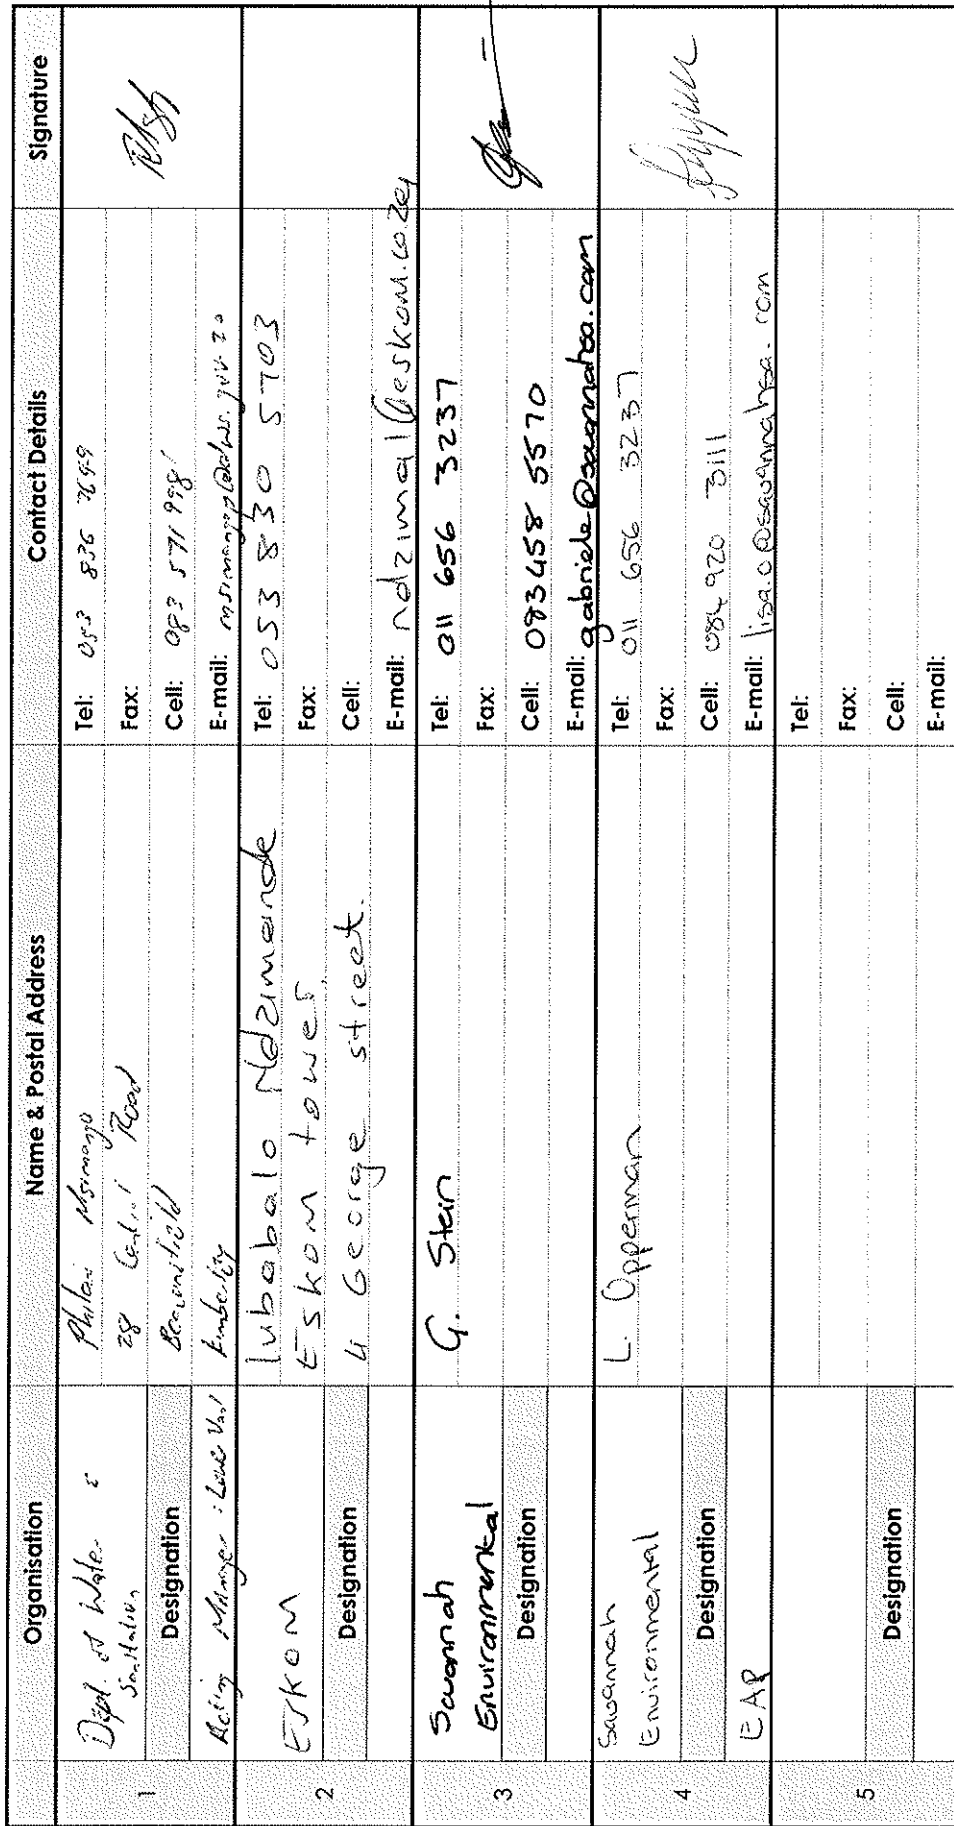 Organisation Name & Postal Address Contact Details Signature
1
Dept. of Water &
Sanitation
Designation
Acting Manager :
Philani Msimango
28 Central Road
Beaconsfield
Kimberley
Tel: 053 836 7649
Fax:
Cell:
E-mail:
2
ESKOM
Designation
lubabalo Ndzimande
ESKOM towers
4 George street.
Tel: 053 830 5703
Fax:
Cell:
E-mail: ndzimal@eskom.co.za
3
Savannah
Environmental
Designation
G. Stein
Tel: 011 656 3237
Fax:
Cell: 083 458 5570
E-mail: gabriele@savannahsa.com
4
Savannah
Environmental
Designation
EAP
L. Opperman
Tel: 011 656 3237
Fax:
Cell: 084 920 3111
E-mail: lisa.o@savannahsa.com
5
Designation
Tel:
Fax:
Cell:
E-mail: